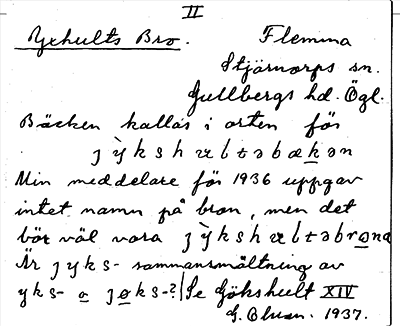 II
Yxhults Bro. Flemma
Stjärnorps sn.
Gullbergs hd. Ögl.
Bäcken kallas i orten för
jỳkshæltəbækən
Min meddelare för 1936 uppgav
intet namn på bron, men det
bör väl vara jỳkshæltəbrona
Är jyks- sammansmältning av
yks- o jøks-?/Se Gökshult XIV
G. 1937.